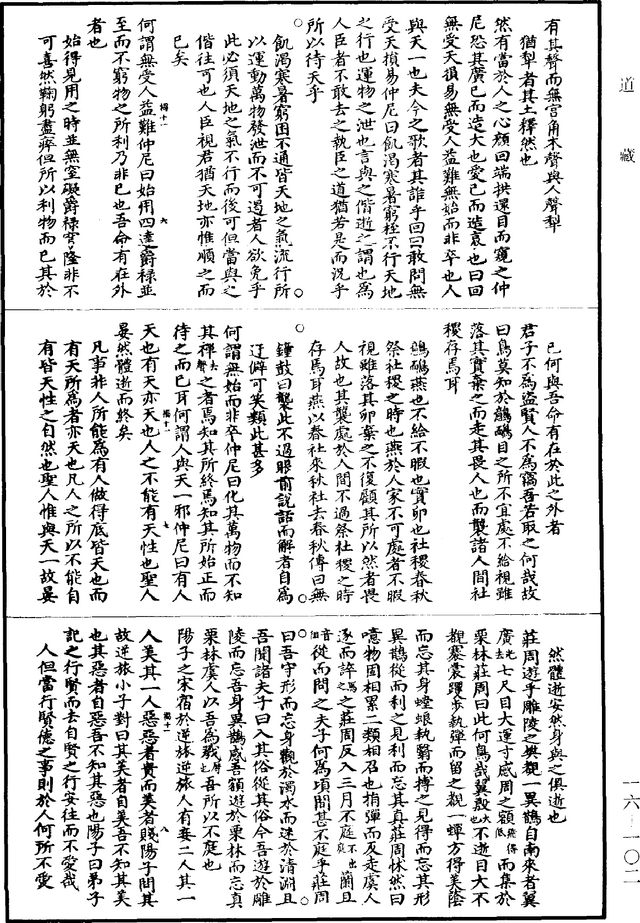 道藏
有其聲而無宮角木聲與人聲犁
猶犁者其土釋然也
然有當於人之心顏回端拱還目而窺之仲
尼恐其廣已而造大也愛已而造哀也曰回
無受天損易無受人益難無始而非卒也人
與天一也夫今之歌者其誰乎回曰敢問無
受天損易仲尼曰飢渴寒暑窮桎不行天地
之行也運物之泄也言與之偕逝之謂也為
人臣者不敢去之執臣之道猶若是而況乎
所以待天乎
飢渴寒暑窮困不通皆天地之氣流行所
以運動萬物發泄而不可遏者人欲免乎
此必須天地之氣不行而後可但當與之
偕往可也人臣視君猶天地亦惟順之而
已矣
何謂無受人益難仲尼曰始用四達爵祿並
至而不窮物之所利乃非已也吾命有在外
者也
始得見用之時並無窒礙爵祿穹隆非不
可喜然鞠躬盡瘁但所以利物而已其於
已何與吾命有在於此之外者
君子不為盜賢人不為竊吾若取之何哉故
曰鳥莫知於鷾鴯目之所不宜處不給視雖
落其實棄之而走其畏人也而襲諸人間社
稷存焉耳
鷾鴯燕也不給不暇也實卵也社稷春秋
祭社稷之時也燕於人家不可處者不暇
視雖落其卵棄之不復顧其所以然者畏
人故也其襲處於人間不過祭社稷之時
存焉耳燕以春社來秋社去春秋傳曰無
鍾鼓曰襲此不過眼前說話而解者自為
迂僻可笑類此甚多
何謂無始而非卒仲尼曰化其萬物而不知
其禪之者焉知其所終焉知其所始正而
待之而已耳何謂人與天一邪仲尼曰有人
天也有天亦天也人之不能有天性也聖人
晏然體逝而終矣
凡事非人所能為有人做得底皆天也而
有天所為者亦天也凡人之所以不能自
有皆天性之自然也聖人惟與天一故晏
然體逝安然身與之俱逝也
莊周遊乎雕陵之樊觀一異鵲自南來者翼
廣七尺目大運寸感周之顙而集於
栗林莊周曰此何鳥哉翼殷不逝目大不
覩褰裳躩步執彈而留之覩一蟬方得美蔭
而忘其身螳蜋執翳而搏之見得而忘其形
異鵲從而利之見利而忘其真莊周怵然曰
噫物固相累二類相召也捐彈而反走虞人
逐而誶之莊周反入三月不庭藺且
從而問之夫子何為頃間甚不庭乎莊周
曰吾守形而忘身觀於濁水而迷於清淵且
吾聞諸夫子曰入其俗從其俗今吾遊於雕
陵而忘吾身異鵲感吾顙遊於栗林而忘真
栗林虞人以吾為戮吾所以不庭也
陽子之宋宿於逆旅逆旅人有妾二人其一
人美其一人惡惡者貴而美者賤陽子問其
故逆旅小子對曰其美者自美吾不知其美
也其惡者自惡吾不知其惡也陽子曰弟子
記之行賢而去自賢之行安往而不愛哉
人但當行賢德之事則於人何所不愛
一六—一〇二